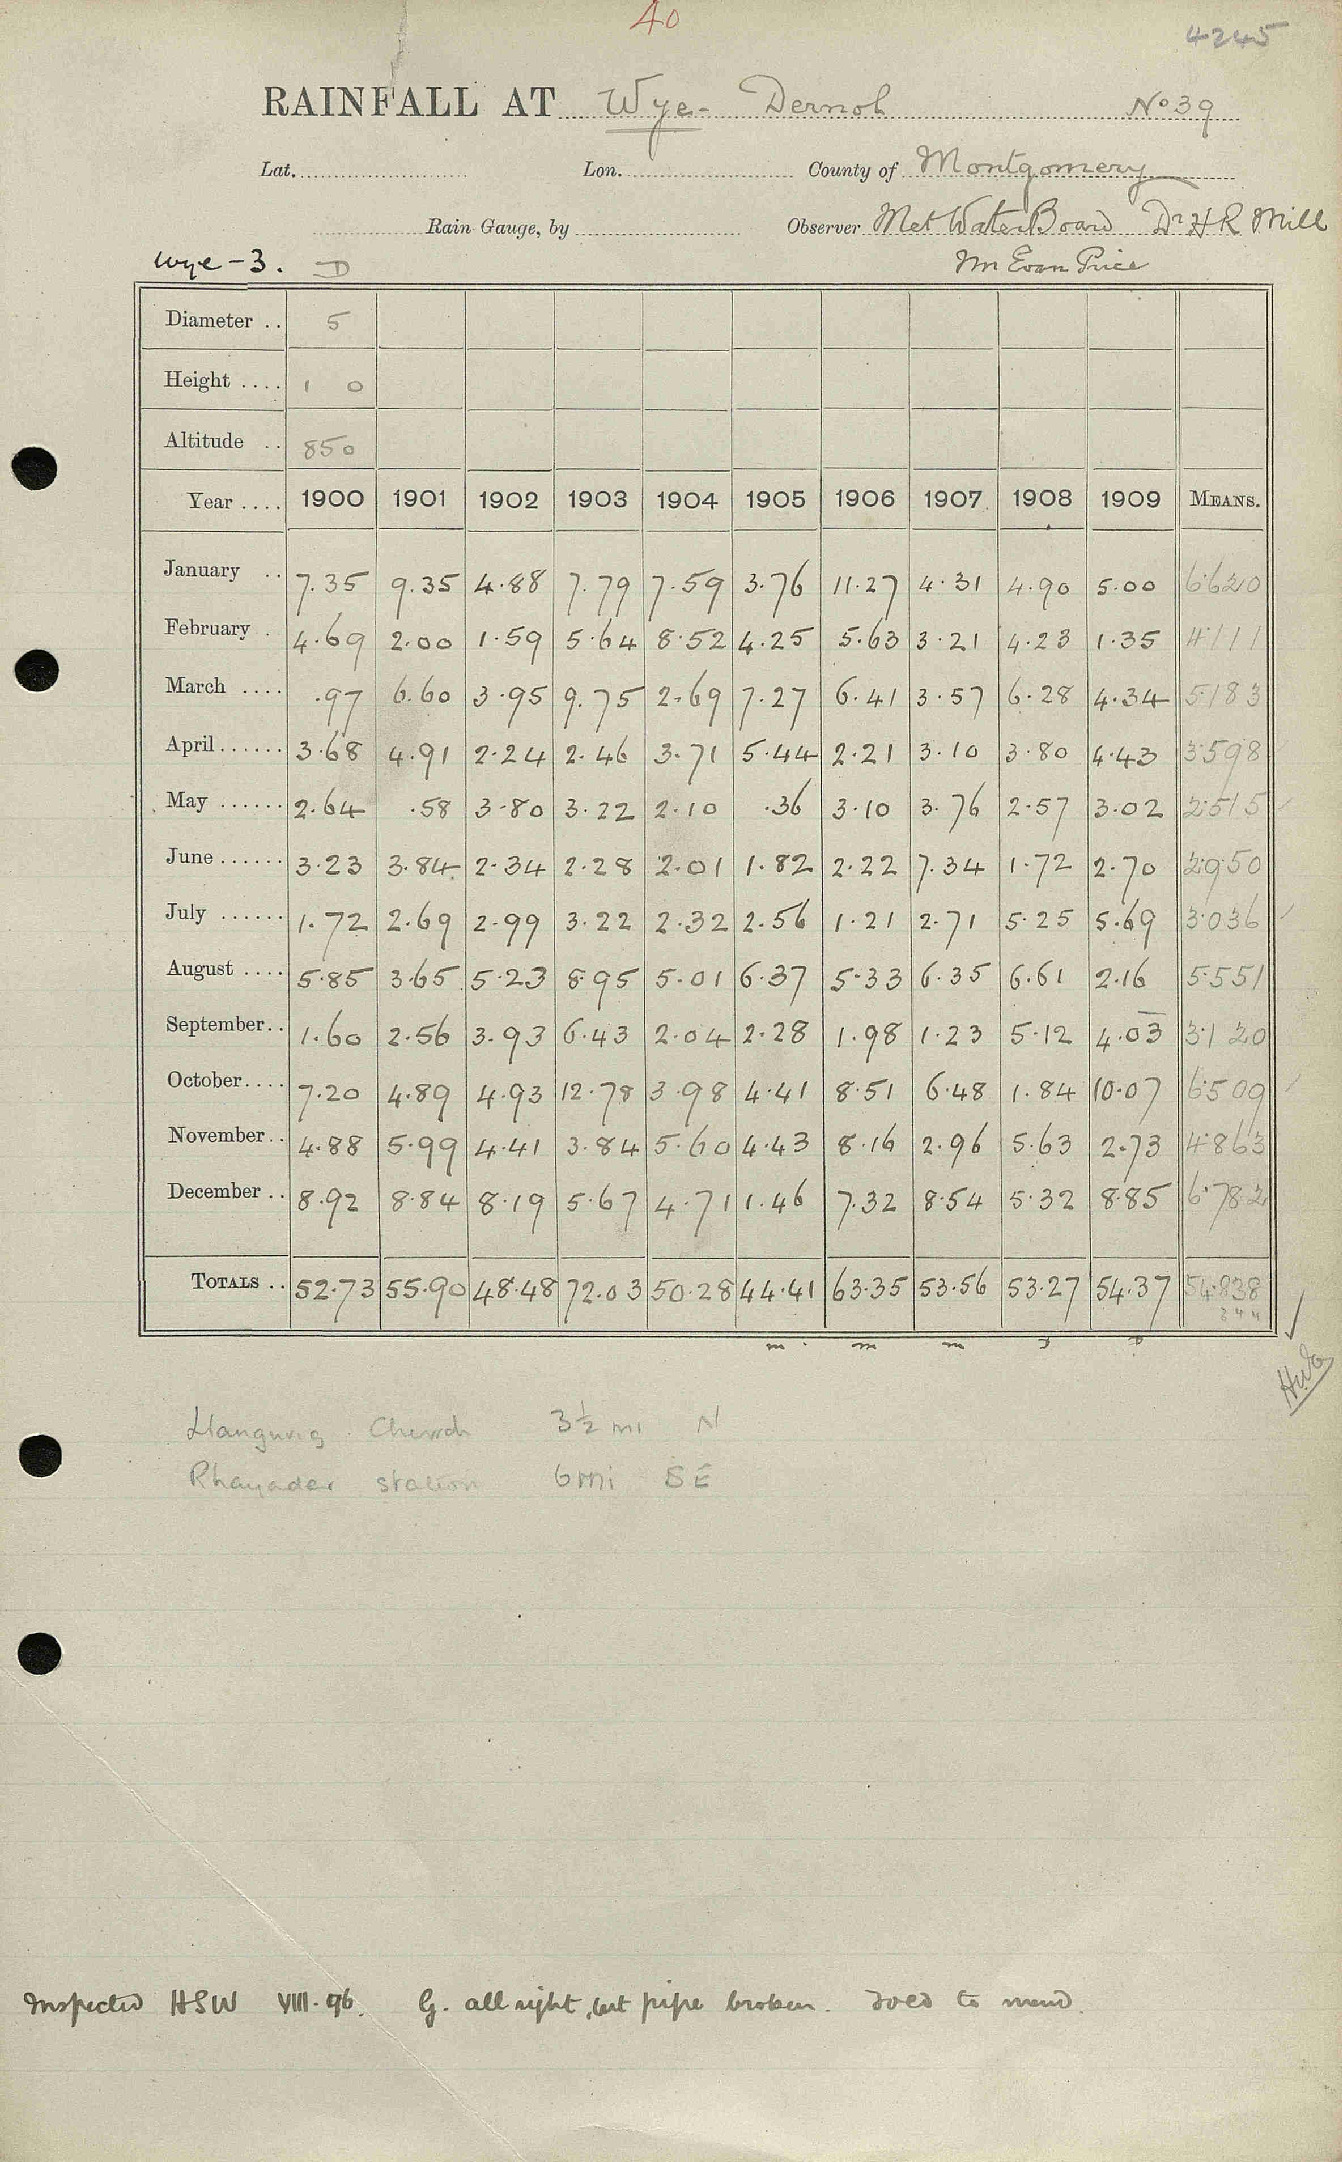 40
4245
RAINFALL AT Wye - Dernol No 39
Lat. Lon. County of Montgomery
Rain Gauge, by Observer Met Water Board Dr H R Mill
Wye - 3. D Mr Evan Price
Diameter .. 5
Height .... 1 0
Altitude .. 850
Year .... 1900 1901 1902 1903 1904 1905 1906 1907 1908 1909 MEANS.
January .. 7.35 9.35 4.88 7.79 7.59 3.76 11.27 4.31 4.90 5.00 6.620
February . 4.69 2.00 1.59 5.64 8.52 4.25 5.63 3.21 4.23 1.35 4.111
March .... .97 6.60 3.95 9.75 2.69 7.27 6.41 3.57 6.28 4.34 5.183
April ...... 3.68 4.91 2.24 2.46 3.71 5.44 2.21 3.10 3.80 4.43 3.598
May ...... 2.64 .58 3.80 3.22 2.10 .36 3.10 3.76 2.57 3.02 2.515
June ...... 3.23 3.84 2.34 2.28 2.01 1.82 2.22 7.34 1.72 2.70 2.950
July ...... 1.72 2.69 2.99 3.22 2.32 2.56 1.21 2.71 5.25 5.69 3.036
August .... 5.85 3.65 5.23 8.95 5.01 6.37 5.33 6.35 6.61 2.16 5.551
September .. 1.60 2.56 3.93 6.43 2.04 2.28 1.98 1.23 5.12 4.03 3.120
October .... 7.20 4.89 4.93 12.78 3.98 4.41 8.51 6.48 1.84 10.07 6.509
November .. 4.88 5.99 4.41 3.84 5.60 4.43 8.16 2.96 5.63 2.73 4.863
December .. 8.92 8.84 8.19 5.67 4.71 1.46 7.32 8.54 5.32 8.85 6.782
TOTALS .. 52.73 55.90 48.48 72.03 50.28 44.41 63.35 53.56 53.27 54.37 54.838
m m m D D
Llangurig Church 3½ mi N
Rhayader station 6 mi SE
Inspected HSW VIII.96. G. all right, but pipe broken. to mend.